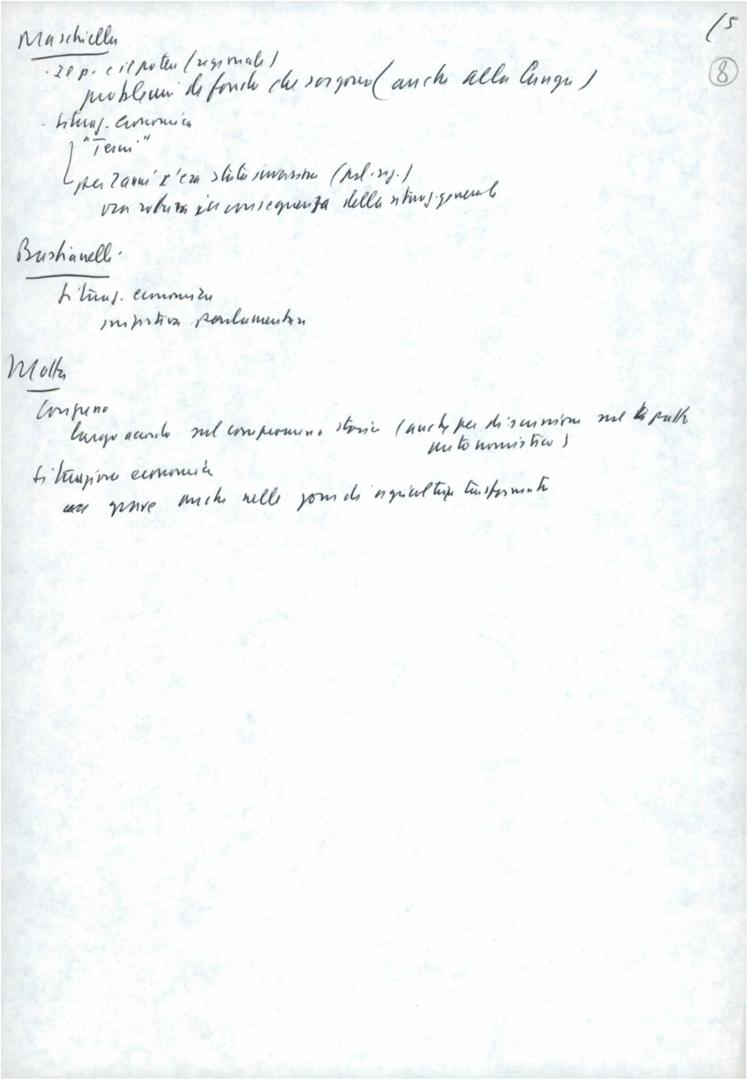 15
8
Maschiella
- il p. e il potere (regionale)
problemi di fondo che sorgono (anche alla lunga)
- Situaz. economica
"Terni"
per 2 anni c'era stata (pol. reg.)
una in conseguenza della situaz. generale
Bastianelli
Situaz. economica
iniziativa parlamentare
Motta
Congresso
largo accordo sul compromesso storico (anche per discussione sul patto
autonomistico)
Situazione economica
grave anche nelle zone di agricoltura trasformata